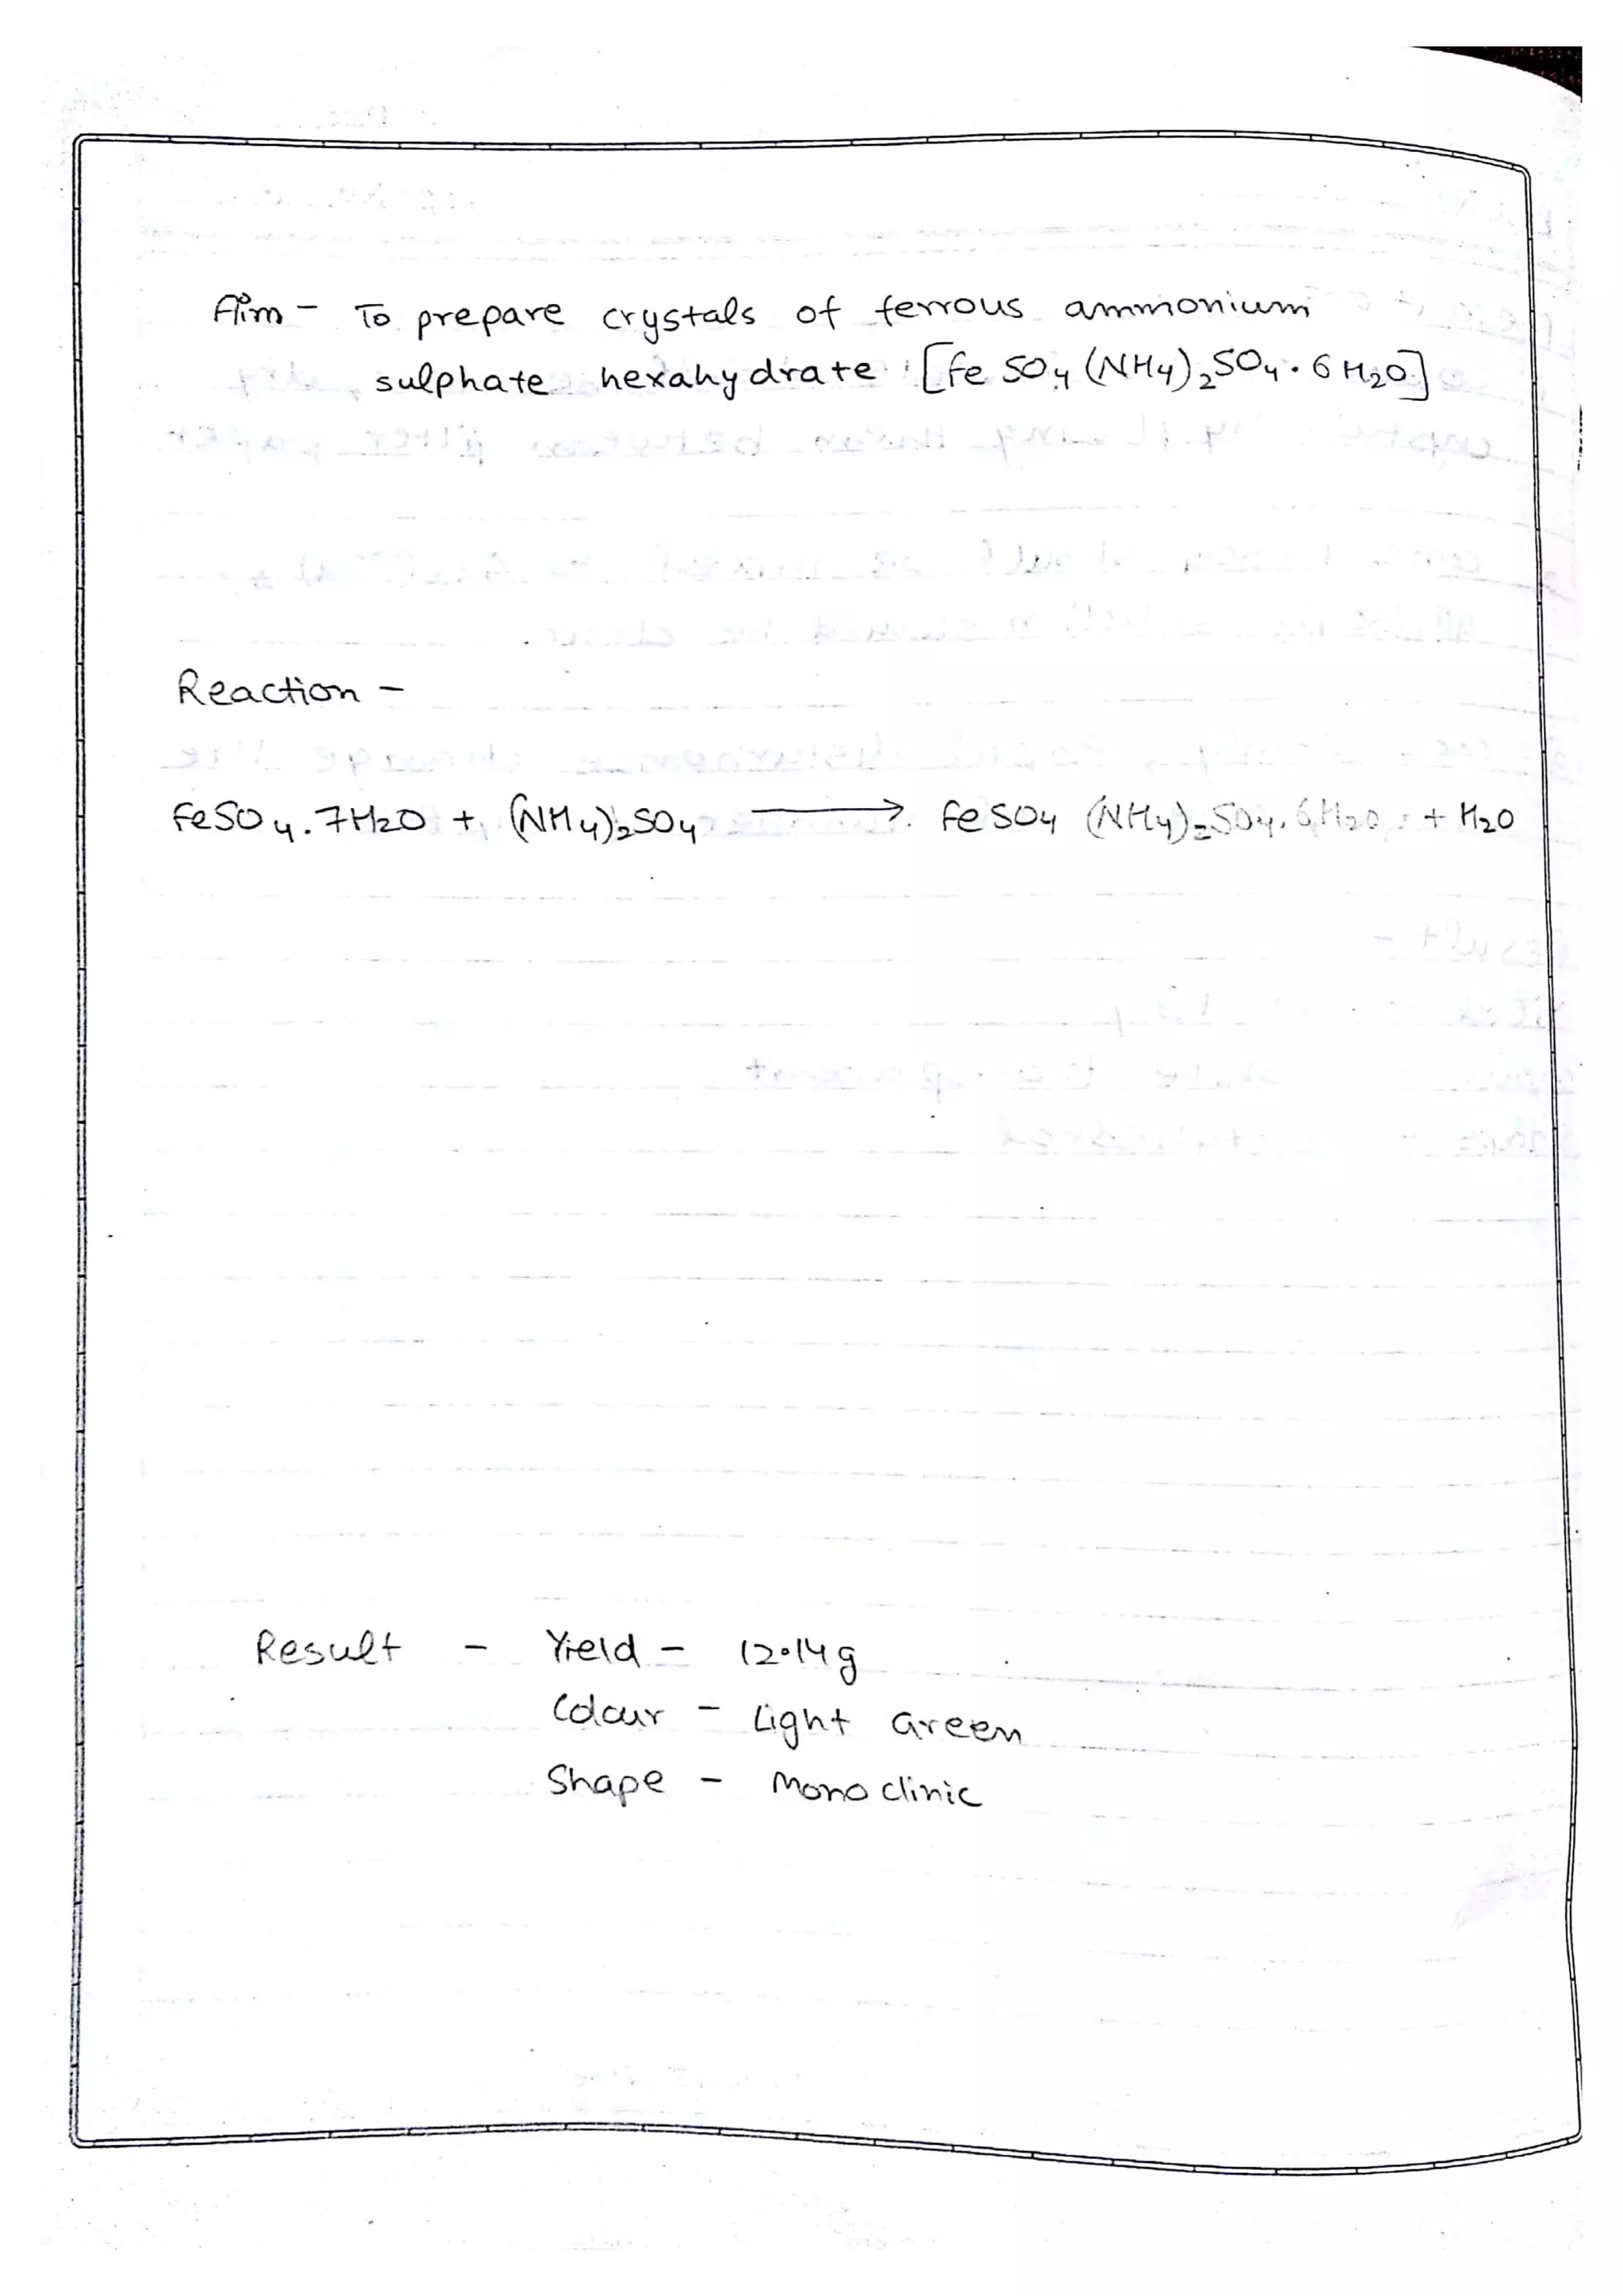 Aim - To prepare crystals of ferrous ammonium
sulphate hexahydrate [FeSO₄(NH₄)₂SO₄·6H₂O]
Reaction -
FeSO₄.7H₂O + (NH₄)₂SO₄ → FeSO₄(NH₄)₂SO₄.6H₂O + H₂O
Result - Yield - 12.14g
Colour - Light Green
Shape - Monoclinic